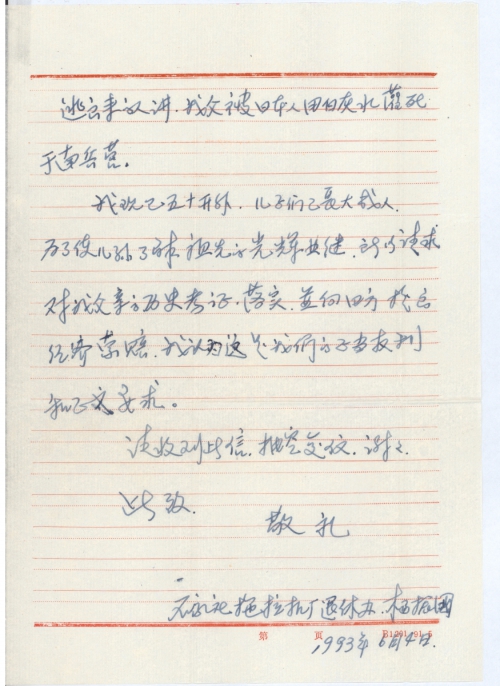 逃出来的人讲，我父被日本人用白灰水灌死
于南兵营。
我现已五十开外，儿子们已长大成人，
为了使儿孙了解祖先的光辉业继，所以请求
对我父亲的历史考证、落实，并向日方提出
经济索赔，我认为这是我们的正当权利
和正义要求。
请收到此信，抽空交仪，谢谢。
此致
敬礼
石家庄拖拉机厂退休办 杨振国
1993年6月4日.
第 页 B1091·91·5